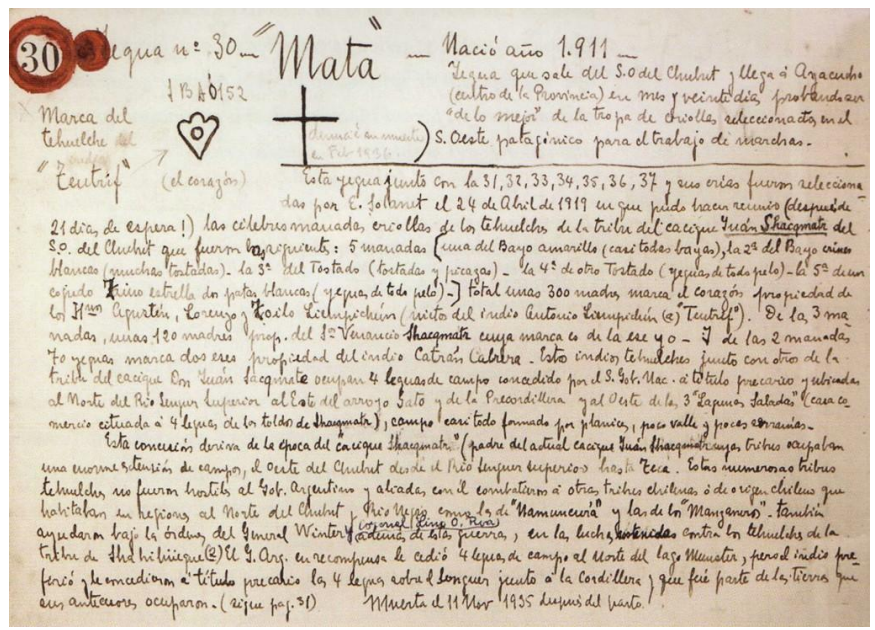 30 Yegua nº 30 — "Mata" — Nació año 1.911 —
Yegua que sale del S.O del Chubut y llega á Ayacucho
(centro de la Provincia) en mes y veinte dias probando ser
"de lo mejor" de la tropa de criollos seleccionados en el
S. Oeste patagónico para el trabajo de marchas.
1 BAÓ152
Marca del
tehuelche del
indio
"Teutrif"
(el corazón)
en Feb 1936
Esta yegua junto con la 31, 32, 33, 34, 35, 36, 37 y sus crias fueron selecciona-
das por E. Solanet el 24 de Abril de 1919 en que pudo hacer reunir (después de
21 dias de espera!) las célebres manadas criollas de los tehuelches de la tribu del cacique Juán Shacqmatr del
S.O. del Chubut que fueron las siguients: 5 manadas [una del Bayo amarillo (casi todas bayas), la 2ª del Bayo crines
blancas (muchas tostadas) - la 3ª del Tostado (tostadas y picazas) - la 4ª de otro Tostado (yeguas de todo pelo) - la 5ª de un
cojudo Zaino estrella dos patas blancas (yeguas de todo pelo) -] total unas 300 madres marca el corazón propiedad de
los Hnos Agustín, Lorenzo y Zoilo Liempichún (nietos del indio Antonio Liempichún (a) "Teutref"). De las 3 ma
nadas, unas 120 madres prop. del Sr Venancio Shacqmatr cuya marca es de la ese y o - Y de las 2 manadas
70 yeguas marca dos eses propiedad del indio Catrán Cabrera. Estos indios tehuelches junto con otros de la
tribu del cacique Don Juán Sacqmate ocupan 4 leguas de campo concedido por el S. Gob. Nac. á titulo precario y ubicadas
al Norte del Rio Senguer Superior al Este del arroyo Gato y de la Precordillera y al Oeste de las 3 "Lagunas Saladas" (casa co-
mercio situada á 4 leguas de los toldos de Shacqmatr), campo casi todo formado por planicies, poco valle y pocas serranías.
Esta concesión deriva de la época del "cacique Shacqmatr" (padre del actual cacique Juán Shacqmatr cuyas tribus ocupaban
una enorme extensión de campos, el Oeste del Chubut desde el Rio Senguer superior hasta Teca. Estas numerosas tribus
tehuelches no fueron hostiles al Gob. Argentino y aliadas con él combatieron á otras tribus chilenas ó de origen chileno que
habitaban en regiones al Norte del Chubut y Rio Negro como las de "Namuncurá" y las de los "Manzaneros". También
ayudaron bajo las órdenes del General Winter y coronel (Lino O. Roa) además de estas guerras, en las luchas sostenidas contra los tehuelches de la
tribu de Shaihihüeque(2) El G. Arg. en recompensa le cedió 4 leguas de campo al Norte del lago Munster, pero el indio pre-
firió y le concedieron á titulo precario las 4 leguas sobre el Senguer junto á la Cordillera y que fué parte de las tierras que
sus antecesores ocuparon. - (sigue pag. 31) Muerta el 11 Nov 1935 después del parto.